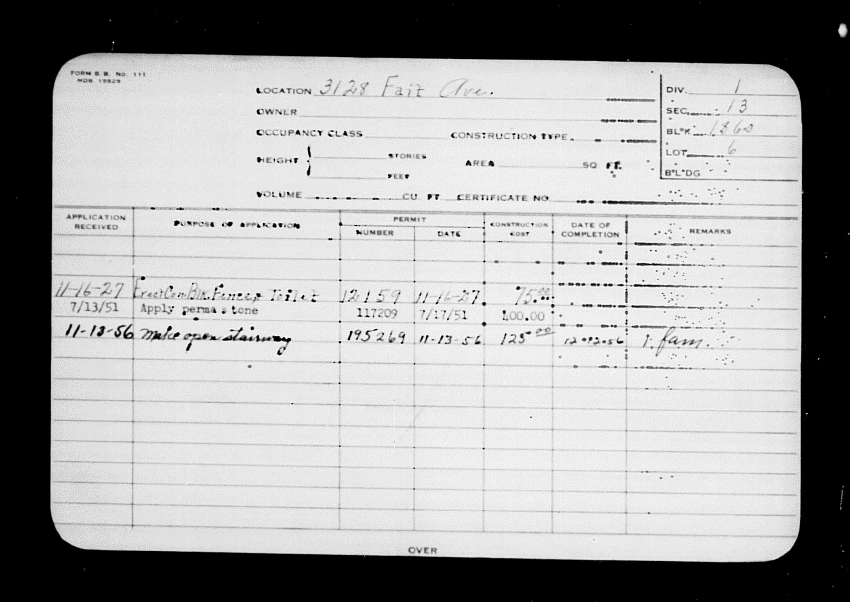 FORM B. B. No. 111
MDB 19829
LOCATION 3128 Fait Ave.
OWNER
OCCUPANCY CLASS CONSTRUCTION TYPE
HEIGHT { STORIES FEET AREA SQ. FT.
VOLUME CU. FT. CERTIFICATE NO.
DIV. 1
SEC. 13
BL'K 1860
LOT 6
B'L'DG
APPLICATION RECEIVED PURPOSE OF APPLICATION PERMIT NUMBER DATE CONSTRUCTION COST DATE OF COMPLETION REMARKS
11-16-27 Erect Con. Blk. Fence & Toilet 12159 11-16-27 75.00
7/13/51 Apply perma stone 117209 7/17/51 400.00
11-13-56 Make open stairway 195269 11-13-56 125 00 fam.
OVER